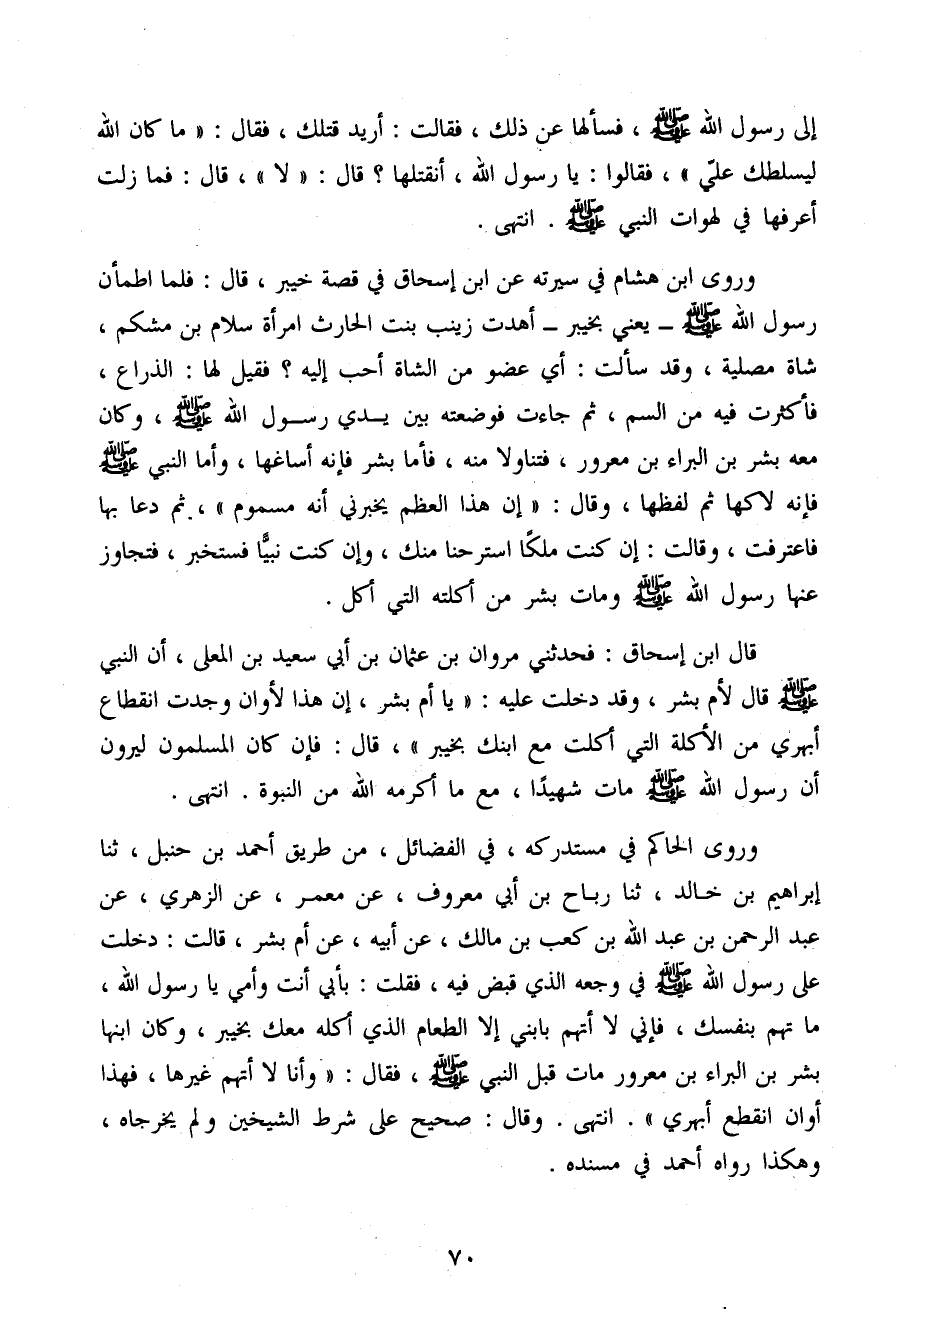 إلى رسول الله ﷺ ، فسألها عن ذلك ، فقالت : أريد قتلك ، فقال : « ما كان الله
ليسلطك عليّ » ، فقالوا : يا رسول الله ، أنقتلها ؟ قال : « لا » ، قال : فما زلت
أعرفها في لهوات النبي ﷺ . انتهى .
وروى ابن هشام في سيرته عن ابن إسحاق في قصة خيبر ، قال : فلما اطمأن
رسول الله ﷺ – يعني بخيبر – أهدت زينب بنت الحارث امرأة سلام بن مشكم ،
شاة مصلية ، وقد سألت : أي عضو من الشاة أحب إليه ؟ فقيل لها : الذراع ،
فأكثرت فيه من السم ، ثم جاءت فوضعته بين يدي رسول الله ﷺ ، وكان
معه بشر بن البراء بن معرور ، فتناولا منه ، فأما بشر فإنه أساغها ، وأما النبي ﷺ
فإنه لاكها ثم لفظها ، وقال : « إن هذا العظم يخبرني أنه مسموم » ، ثم دعا بها
فاعترفت ، وقالت : إن كنت ملكًا استرحنا منك ، وإن كنت نبيًّا فستخبر ، فتجاوز
عنها رسول الله ﷺ ومات بشر من أكلته التي أكل .
قال ابن إسحاق : فحدثني مروان بن عثمان بن أبي سعيد بن المعلى ، أن النبي
ﷺ قال لأم بشر ، وقد دخلت عليه : « يا أم بشر ، إن هذا لأوان وجدت انقطاع
أبهري من الأكلة التي أكلت مع ابنك بخيبر » ، قال : فإن كان المسلمون ليرون
أن رسول الله ﷺ مات شهيدًا ، مع ما أكرمه الله من النبوة . انتهى .
وروى الحاكم في مستدركه ، في الفضائل ، من طريق أحمد بن حنبل ، ثنا
إبراهيم بن خالد ، ثنا رباح بن أبي معروف ، عن معمر ، عن الزهري ، عن
عبد الرحمن بن عبد الله بن كعب بن مالك ، عن أبيه ، عن أم بشر ، قالت : دخلت
على رسول الله ﷺ في وجعه الذي قبض فيه ، فقلت : بأبي أنت وأمي يا رسول الله ،
ما تهم بنفسك ، فإني لا أتهم بابني إلا الطعام الذي أكله معك بخيبر ، وكان ابنها
بشر بن البراء بن معرور مات قبل النبي ﷺ ، فقال : « وأنا لا أتهم غيرها ، فهذا
أوان انقطع أبهري » . انتهى . وقال : صحيح على شرط الشيخين ولم يخرجاه ،
وهكذا رواه أحمد في مسنده .
٧٠